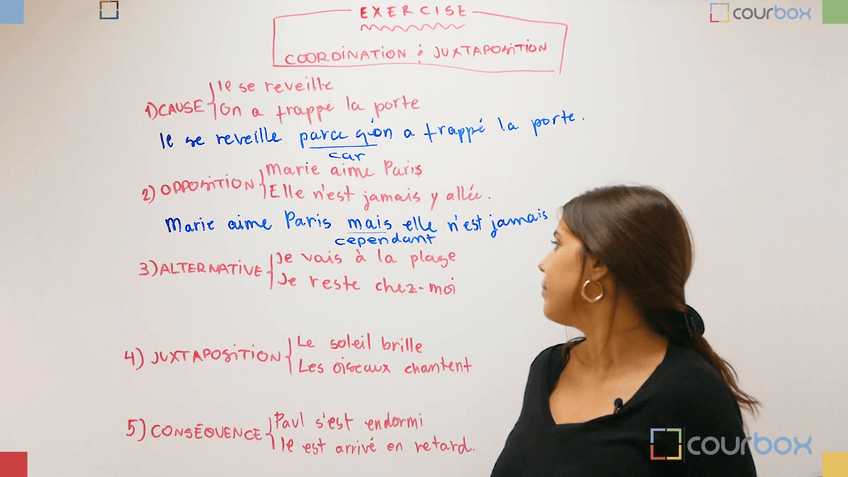 EXERCISE
courbox
COORDINATION : JUXTAPOSITION
1) CAUSE
Ie se reveille
On a frappé la porte
Ie se reveille parce qu'on a frappé la porte.
car
2) OPPOSITION
Marie aime Paris
Elle n'est jamais y allée.
Marie aime Paris mais elle n'est jamais
cependant
3) ALTERNATIVE
Je vais à la plage
Je reste chez-moi
4) JUXTAPOSITION
Le soleil brille
Les oiseaux chantent
5) CONSÉQUENCE
Paul s'est endormi
Ie est arrivé en retard.
courbox